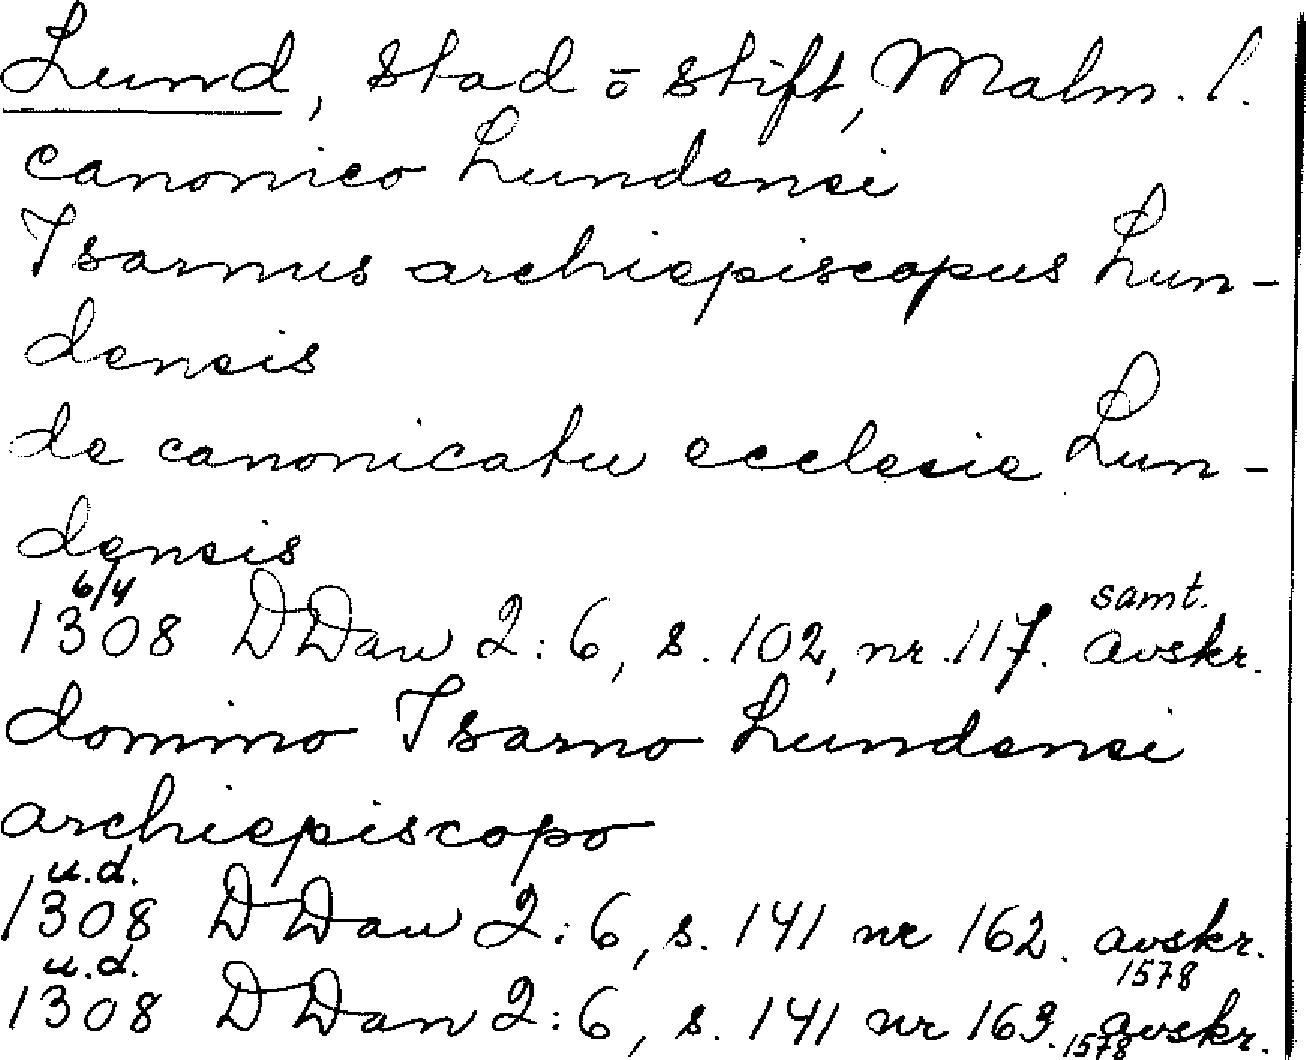 Lund, stad o stift, Malm. l.
canonico Lundensi
Isarnus archiepiscopus Lun-
densis
de canonicatu ecclesie Lun-
densis
6/4 samt.
1308 DDan 2:6, s. 102, nr. 117. avskr.
domino Isarno Lundensi
archiepiscopo
u.d.
1308 DDan 2:6, s. 141 nr 162. avskr.
u.d. 1578
1308 DDan 2:6, s. 141 nr 163. avskr.
1578